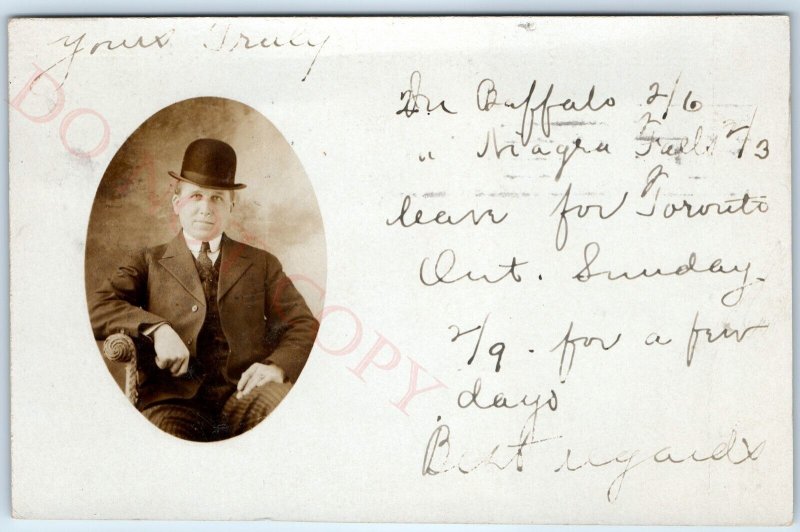 Yours Truly
In Buffalo 2/6
" Niagra Falls 2/3
leave for Toronto
Ont. Sunday.
2/9. for a few
days
Best regards
DO NOT COPY